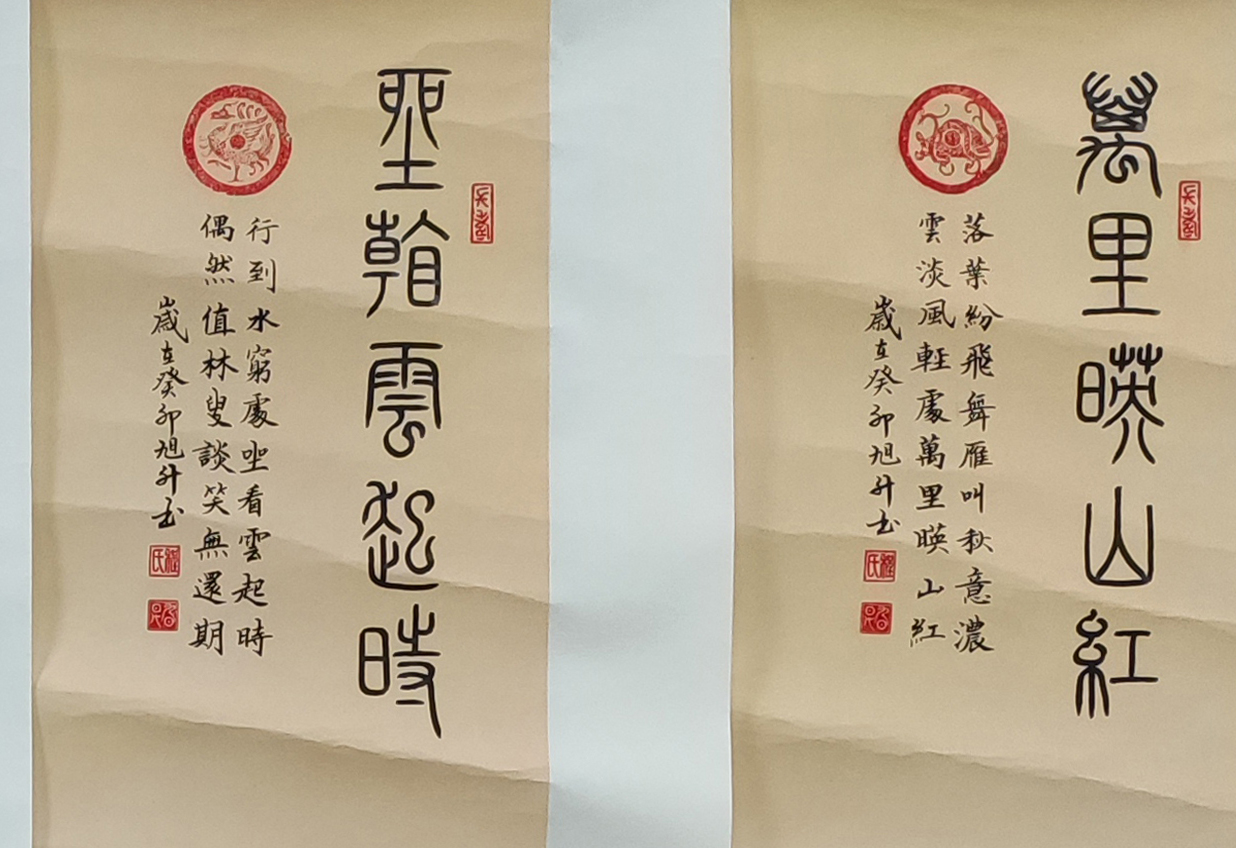 萬里暎山紅
落葉紛飛舞雁叫秋意濃
雲淡風輕處萬里暎山紅
歲在癸卯旭升书
程氏
坐看雲起時
行到水窮處坐看雲起時
偶然值林叟談笑無還期
歲在癸卯旭升书
程氏